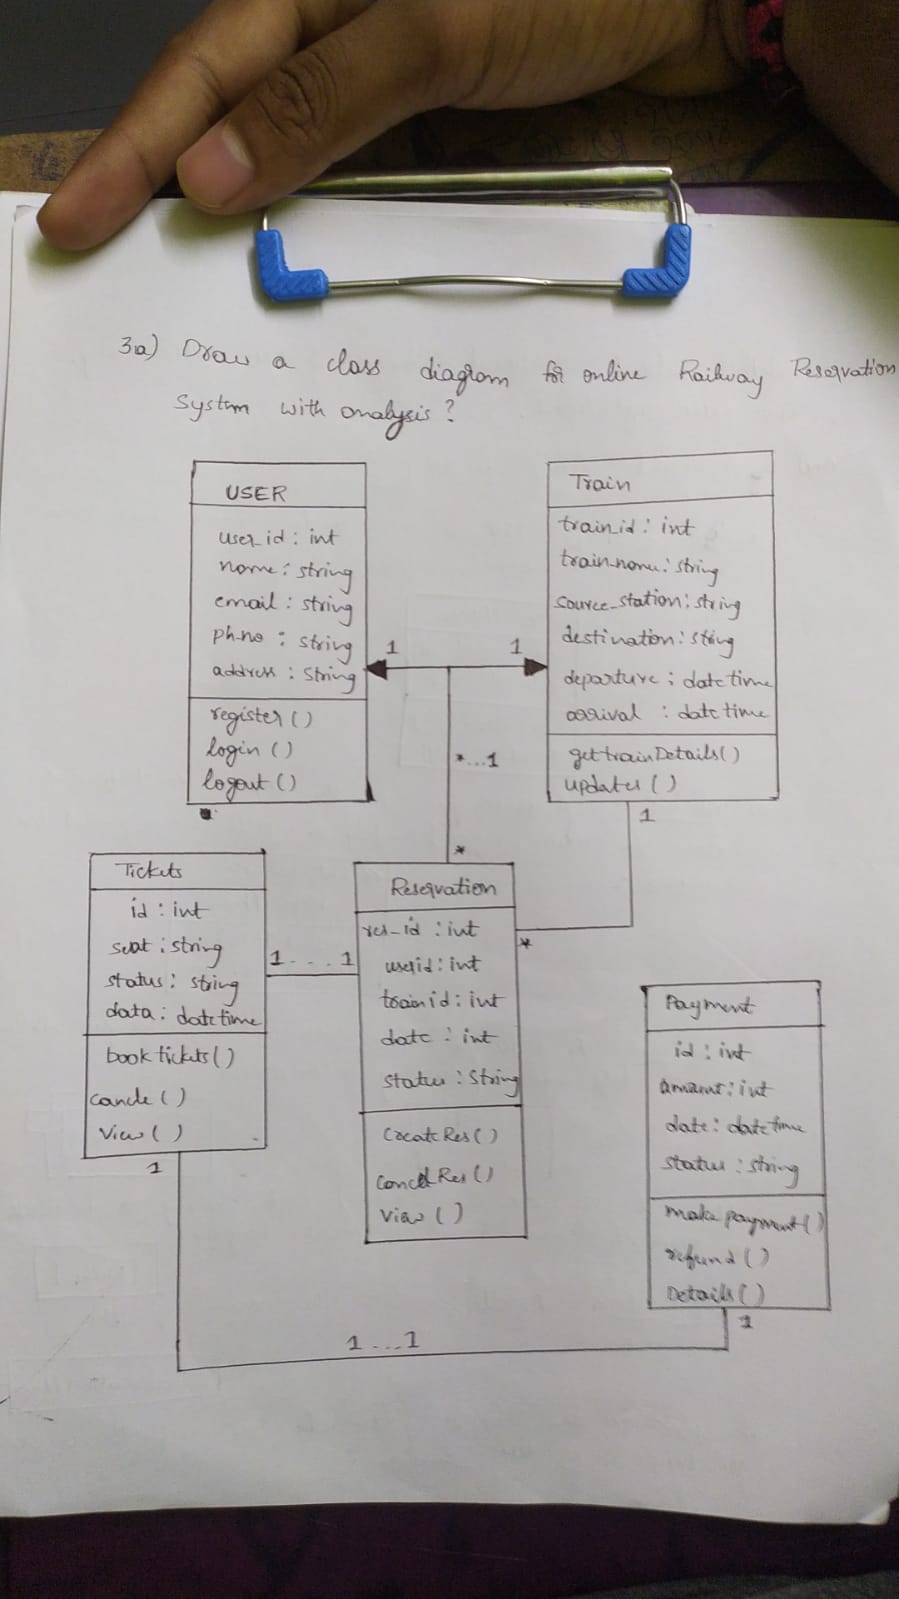 3a) Draw a class diagram for online Railway Reservation
System with analysis?
USER
user_id : int
name : string
email : string
ph-no : string
address : String
register()
login()
logout()
Train
train_id : int
train-name : string
source_station : string
destination : string
departure : date time
arrival : date time
get train Details()
updates()
1
1
*...1
*
1
*
Tickets
id : int
seat : string
status : string
data : date time
book tickets()
cancle()
View()
1
1...1
Reservation
res_id : int
userid : int
train id : int
date : int
status : String
Create Res()
Cancel Res()
View()
Payment
id : int
amount : int
date : date time
status : string
make payment()
refund()
Details()
1
1...1